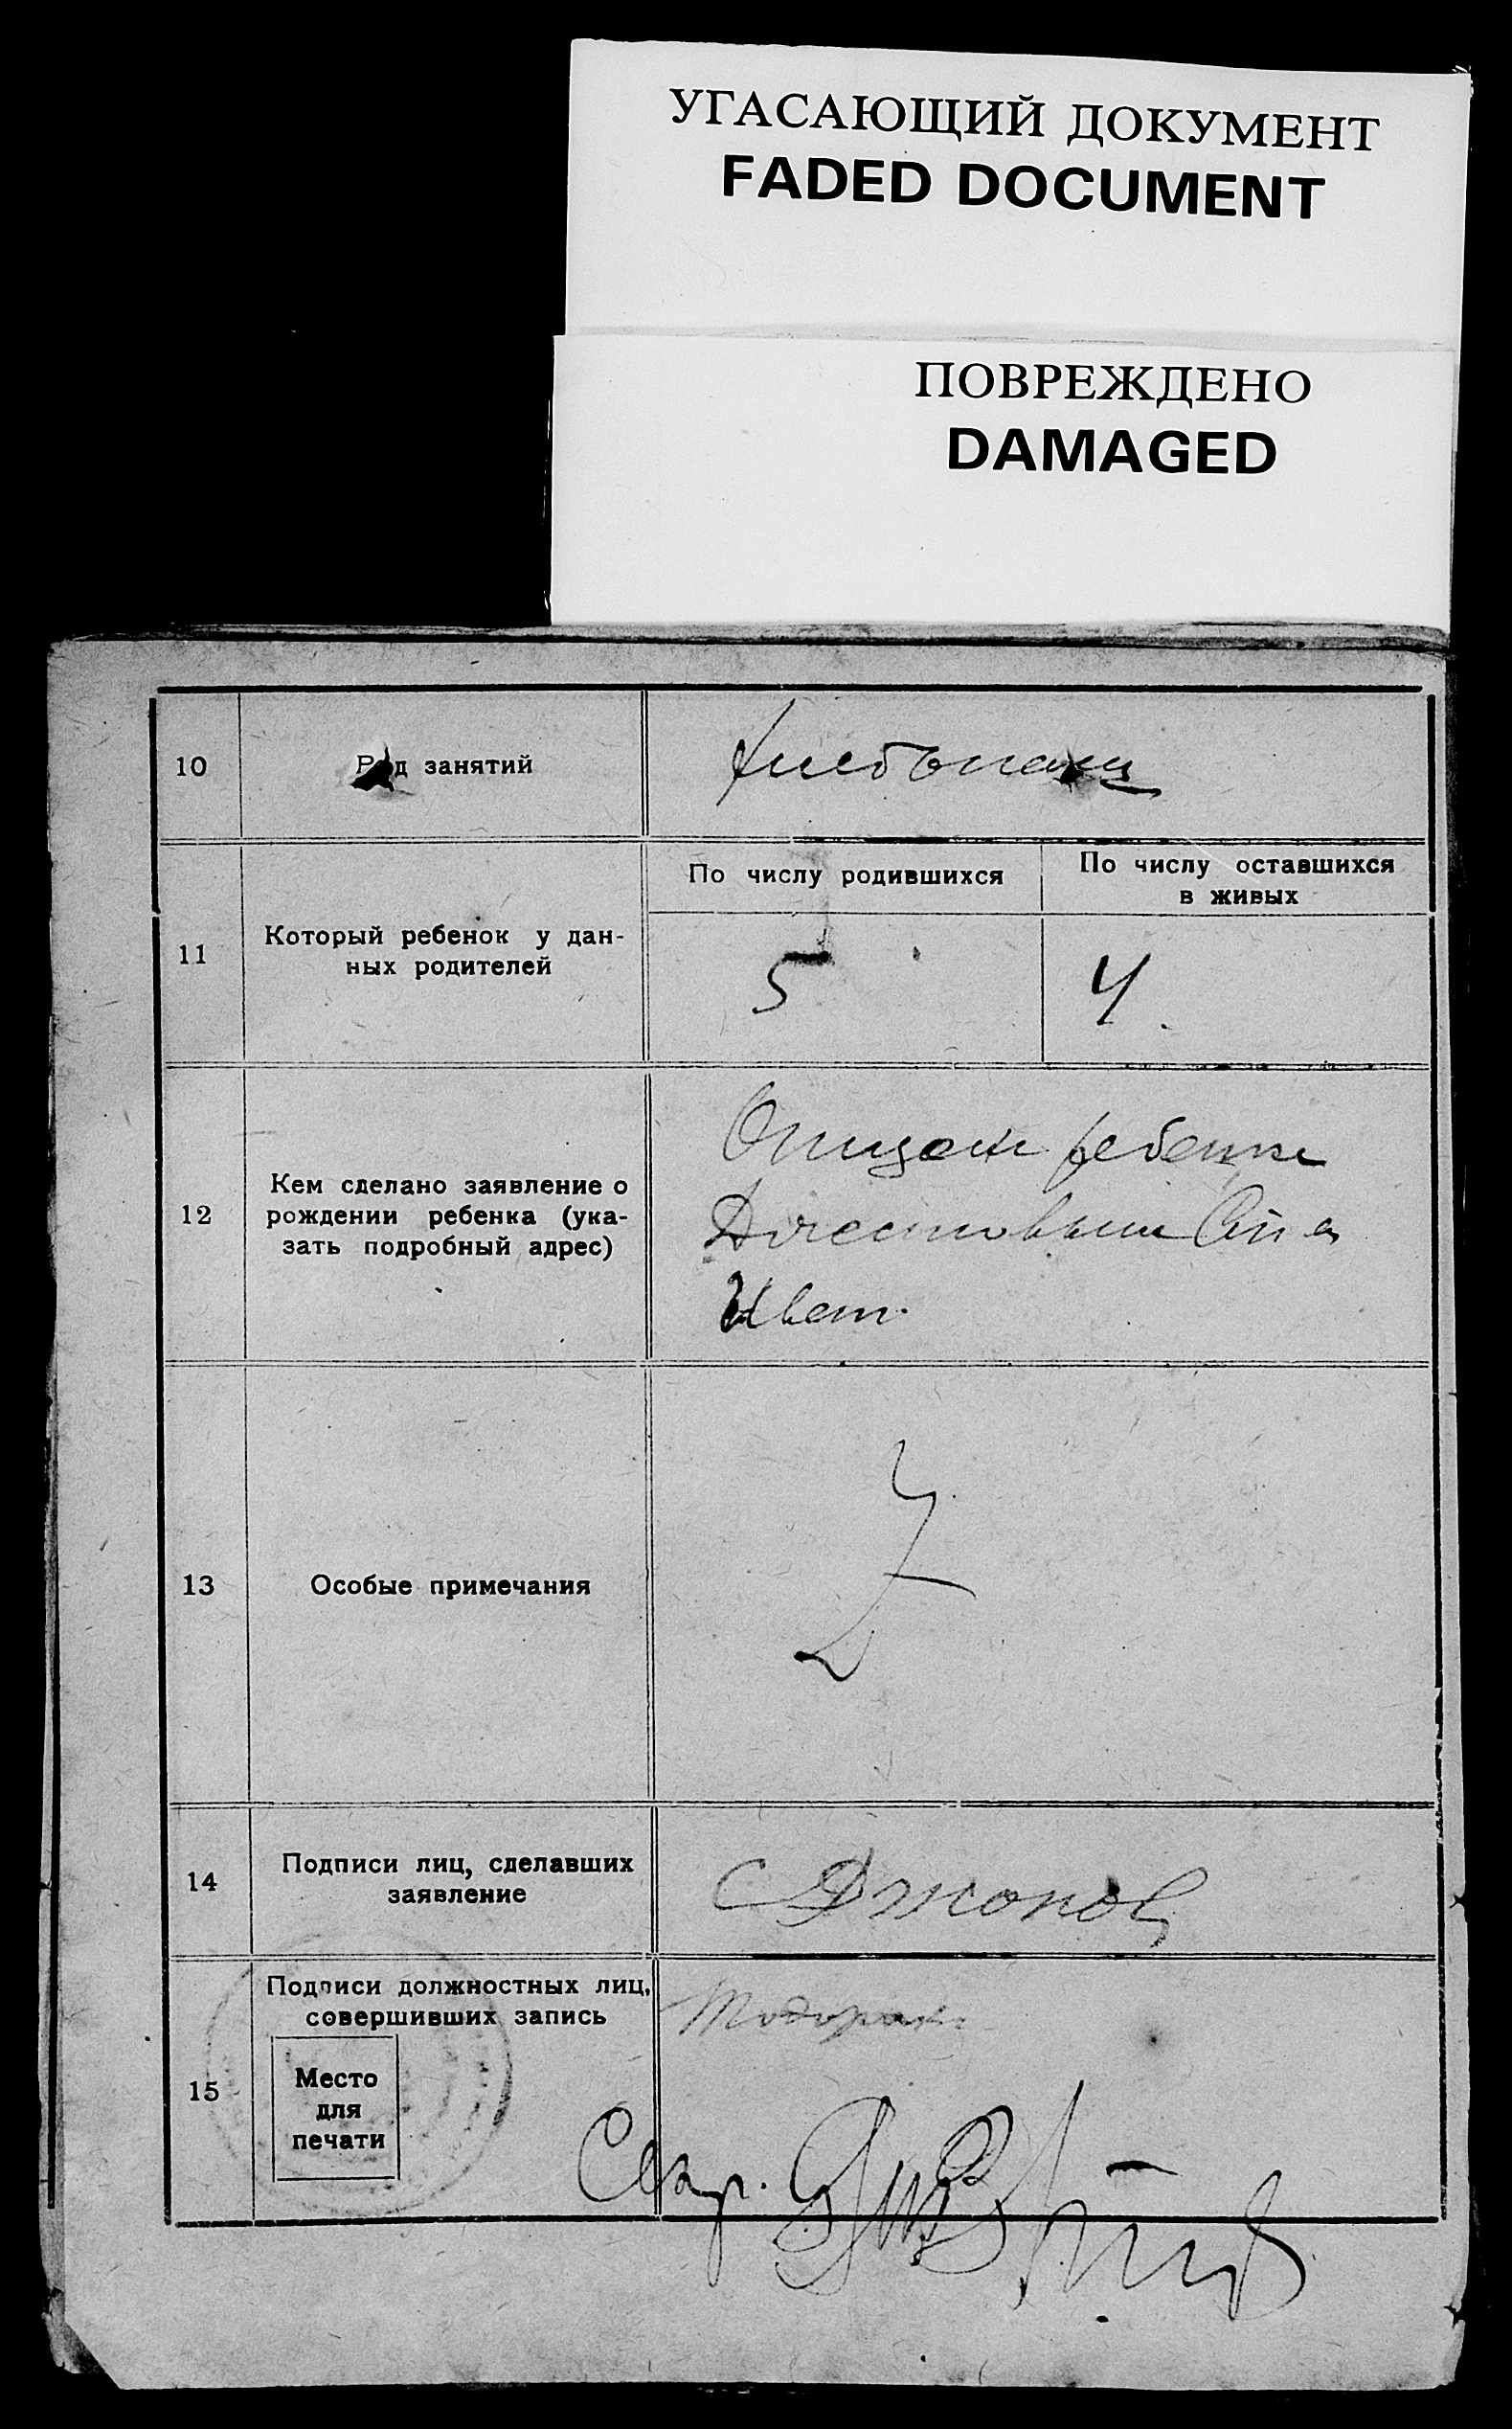 УГАСАЮЩИЙ ДОКУМЕНТ
FADED DOCUMENT
ПОВРЕЖДЕНО
DAMAGED
10
Род занятий
хлебопашец
11
Который ребенок у дан-
ных родителей
По числу родившихся
По числу оставшихся
в живых
5
4
12
Кем сделано заявление о
рождении ребенка (ука-
зать подробный адрес)
ребенка
13
Особые примечания
14
Подписи лиц, сделавших
заявление
15
Подписи должностных лиц,
совершивших запись
Место
для
печати
Секр.